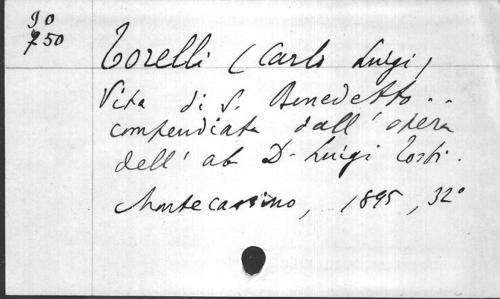 90
750
Torelli (Carlo Luigi)
Vita di S. Benedetto ..
compendiata dall' opera
dell' ab D. Luigi Tosti.
Montecassino, 1895, 32°